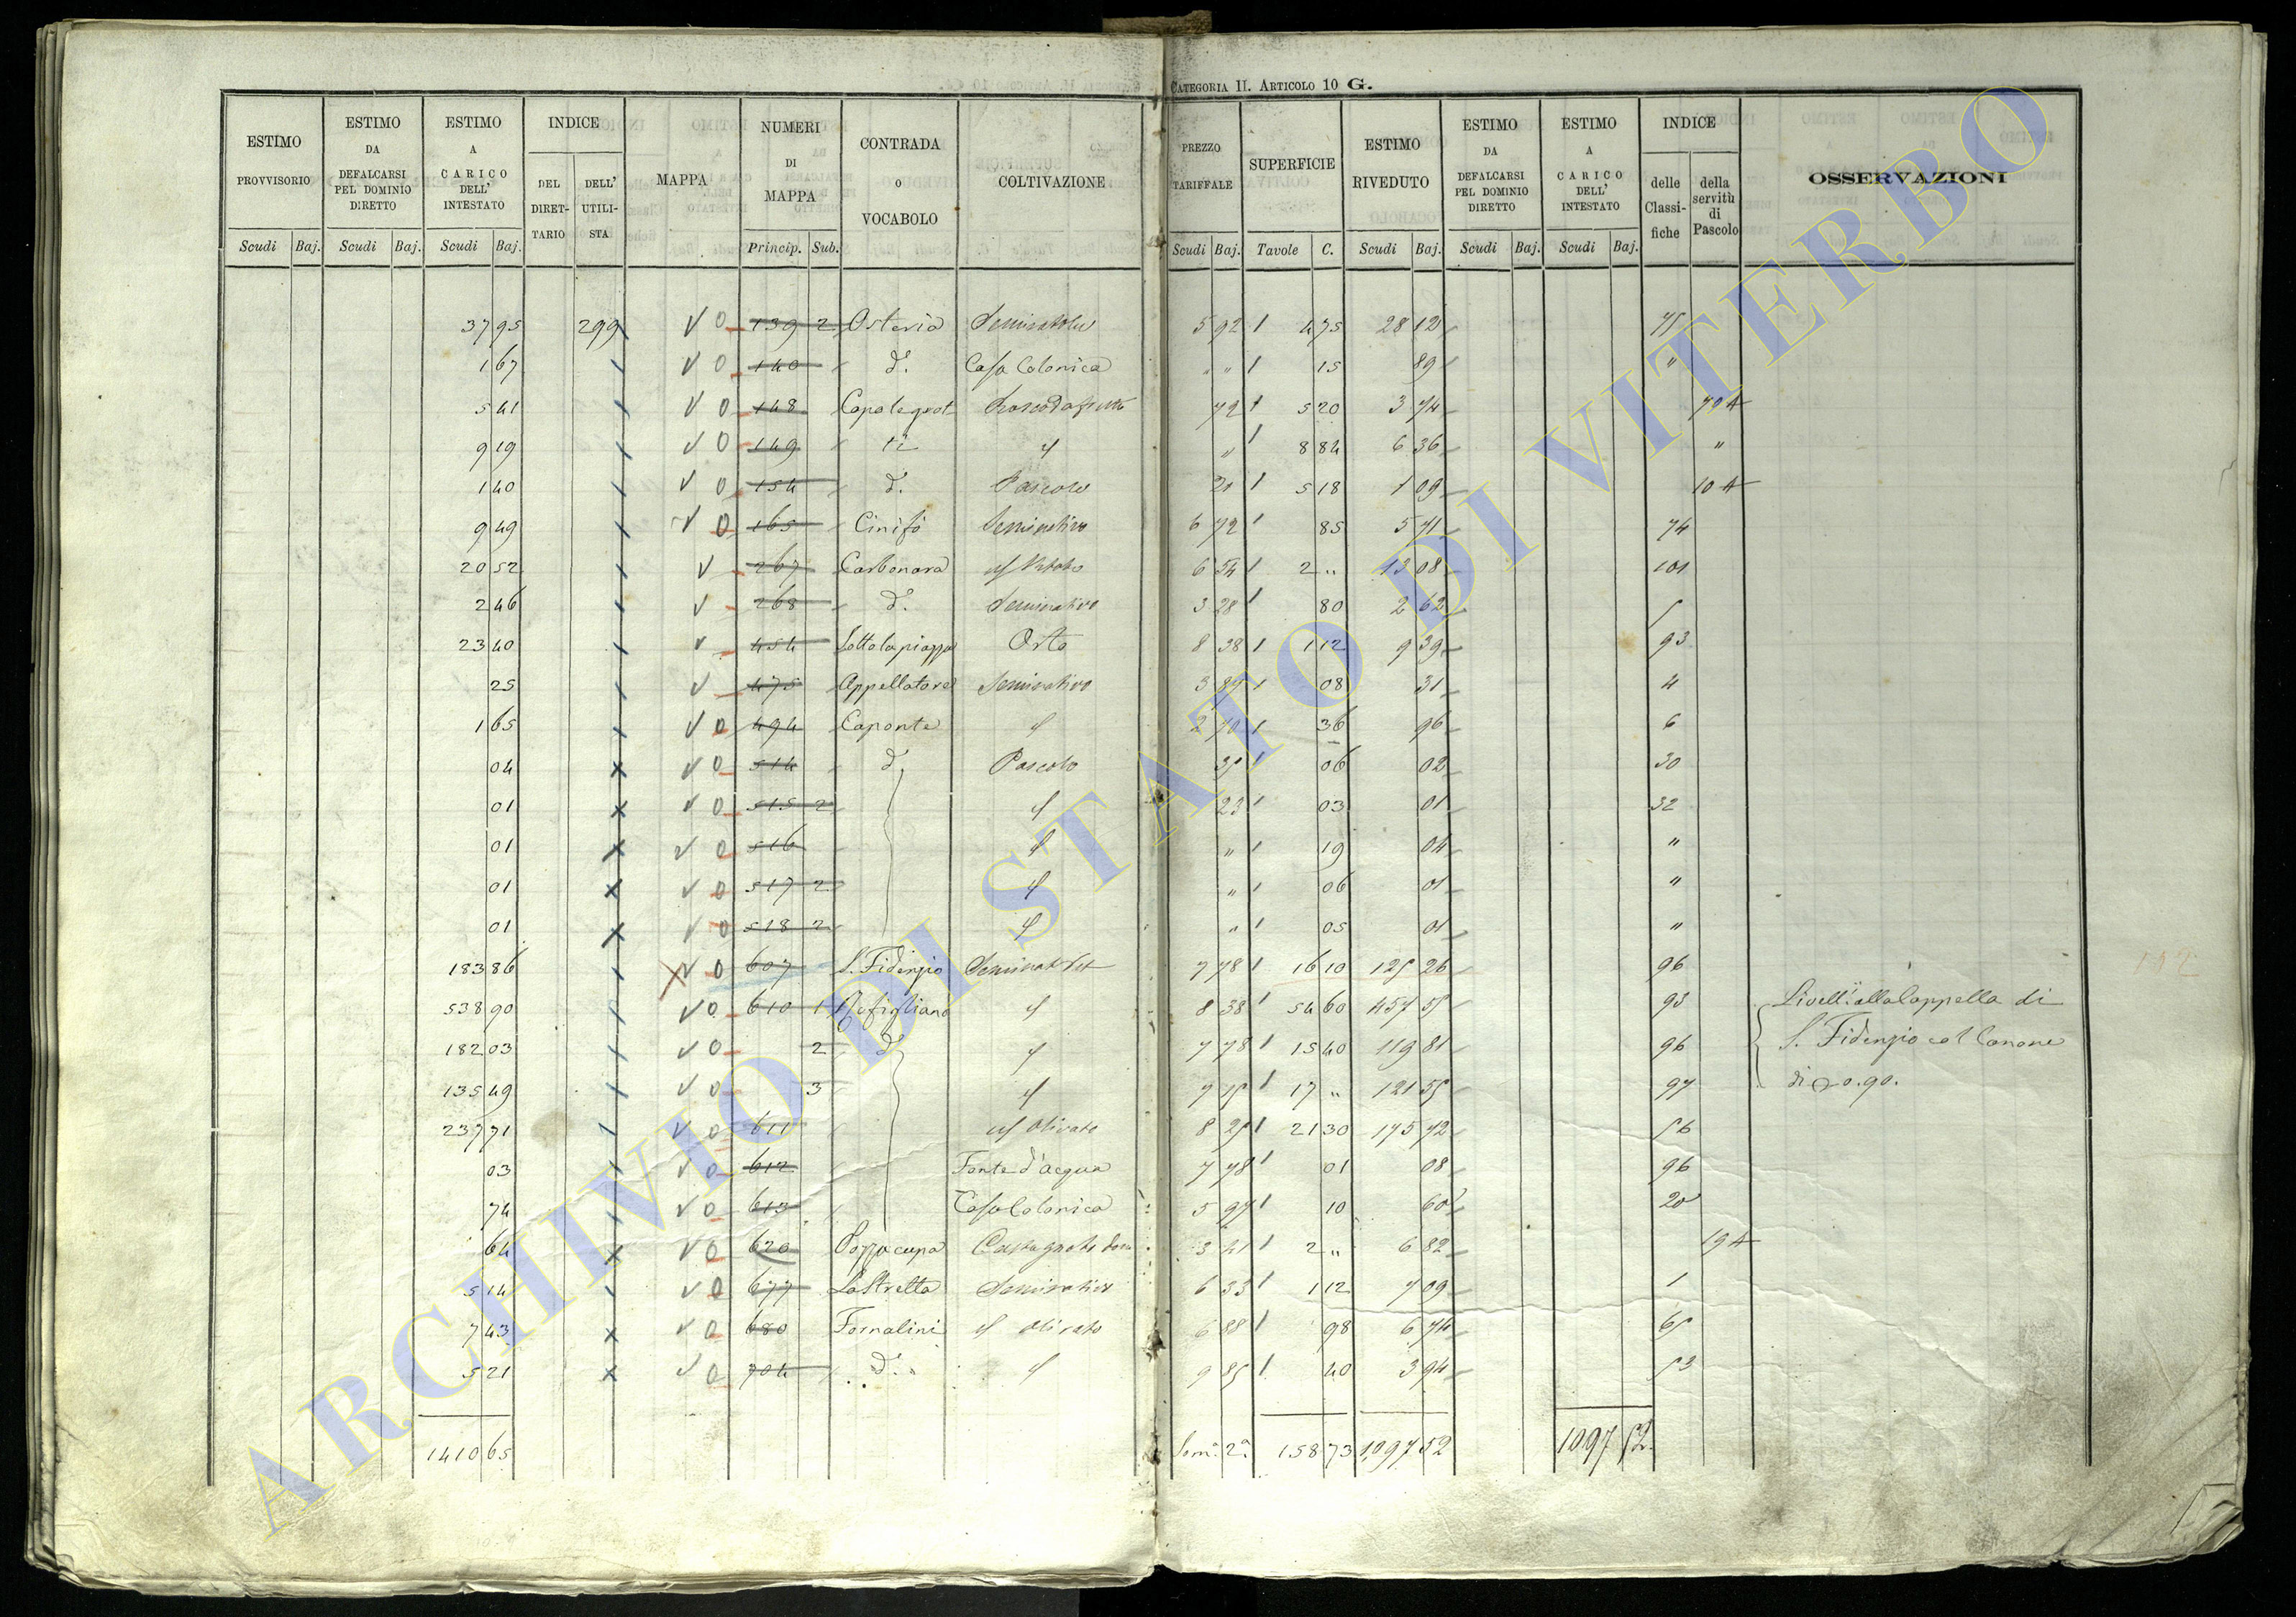 CATEGORIA II. ARTICOLO 10 G.
ESTIMO PROVVISORIO | ESTIMO DA DEFALCARSI PEL DOMINIO DIRETTO | ESTIMO A CARICO DELL' INTESTATO | INDICE | MAPPA | NUMERI DI MAPPA | CONTRADA O VOCABOLO | COLTIVAZIONE | PREZZO TARIFFALE | SUPERFICIE | ESTIMO RIVEDUTO | ESTIMO DA DEFALCARSI PEL DOMINIO DIRETTO | ESTIMO A CARICO DELL' INTESTATO | INDICE | OSSERVAZIONI
DEL DIRETTARIO | DELL' UTILISTA | delle Classifiche | della servitù di Pascolo
Scudi Baj. | Scudi Baj. | Scudi Baj. | Princip. Sub. | Scudi Baj. | Tavole C. | Scudi Baj. | Scudi Baj. | Scudi Baj.
37 95 299 V O 139 2 Osteria 5 92 4 75 28 12
1 67 V O 140 d.º Casa Colonica " " 15 89 "
5 41 V O 148 72 5 20 3 74
9 19 V O 149 " 8 84 6 36 "
1 40 V O 154 d.º Pascolo 21 5 18 1 09 10 A
9 49 V O 165 Seminativo 6 72 85 5 71 74
20 52 V 267 Carbonara 6 54 2 " 13 08 101
2 46 V 268 d.º Seminativo 3 28 80 2 62
23 40 V 454 Sottolapiazza Orto 8 38 1 12 9 39 93
25 V 475 Appellatore Seminativo 3 89 08 31 4
1 65 V O 494 Caponte 36 96 6
04 V O 514 d.º Pascolo 06 02 30
01 V O 515 2 23 03 01 32
01 V O 516 " 19 04 "
01 V O 517 2 " 06 01 "
01 V O 518 2 " 05 01 "
183 86 V O 607 S. Fidenzio 7 78 16 10 125 26 96
538 90 V O 610 1 8 38 54 60 457 55 93 Livell.º alla Cappella di
182 03 V O 2 d.º 7 78 15 40 119 81 96 S. Fidenzio col Canone
135 49 V O 3 7 15 17 " 121 55 97 di 0.90.
237 71 V O 611 Olivato 8 25 21 30 175 72 56
03 V O 612 Fonte d'acqua 7 78 01 08 96
74 V O 613 Casa Colonica 5 97 10 60 20
64 V O 620 Pozzocupa 3 41 2 " 6 82 19 A
5 14 V O 677 La Stretta Seminativo 6 33 1 12 7 09 1
7 43 V O 680 Fornalini Olivato 6 88 98 6 74 65
5 21 V O 704 d.º 9 85 40 3 94 53
1410 65 Som.ª 2ª 158 73 1097 52 1097 52
ARCHIVIO DI STATO DI VITERBO